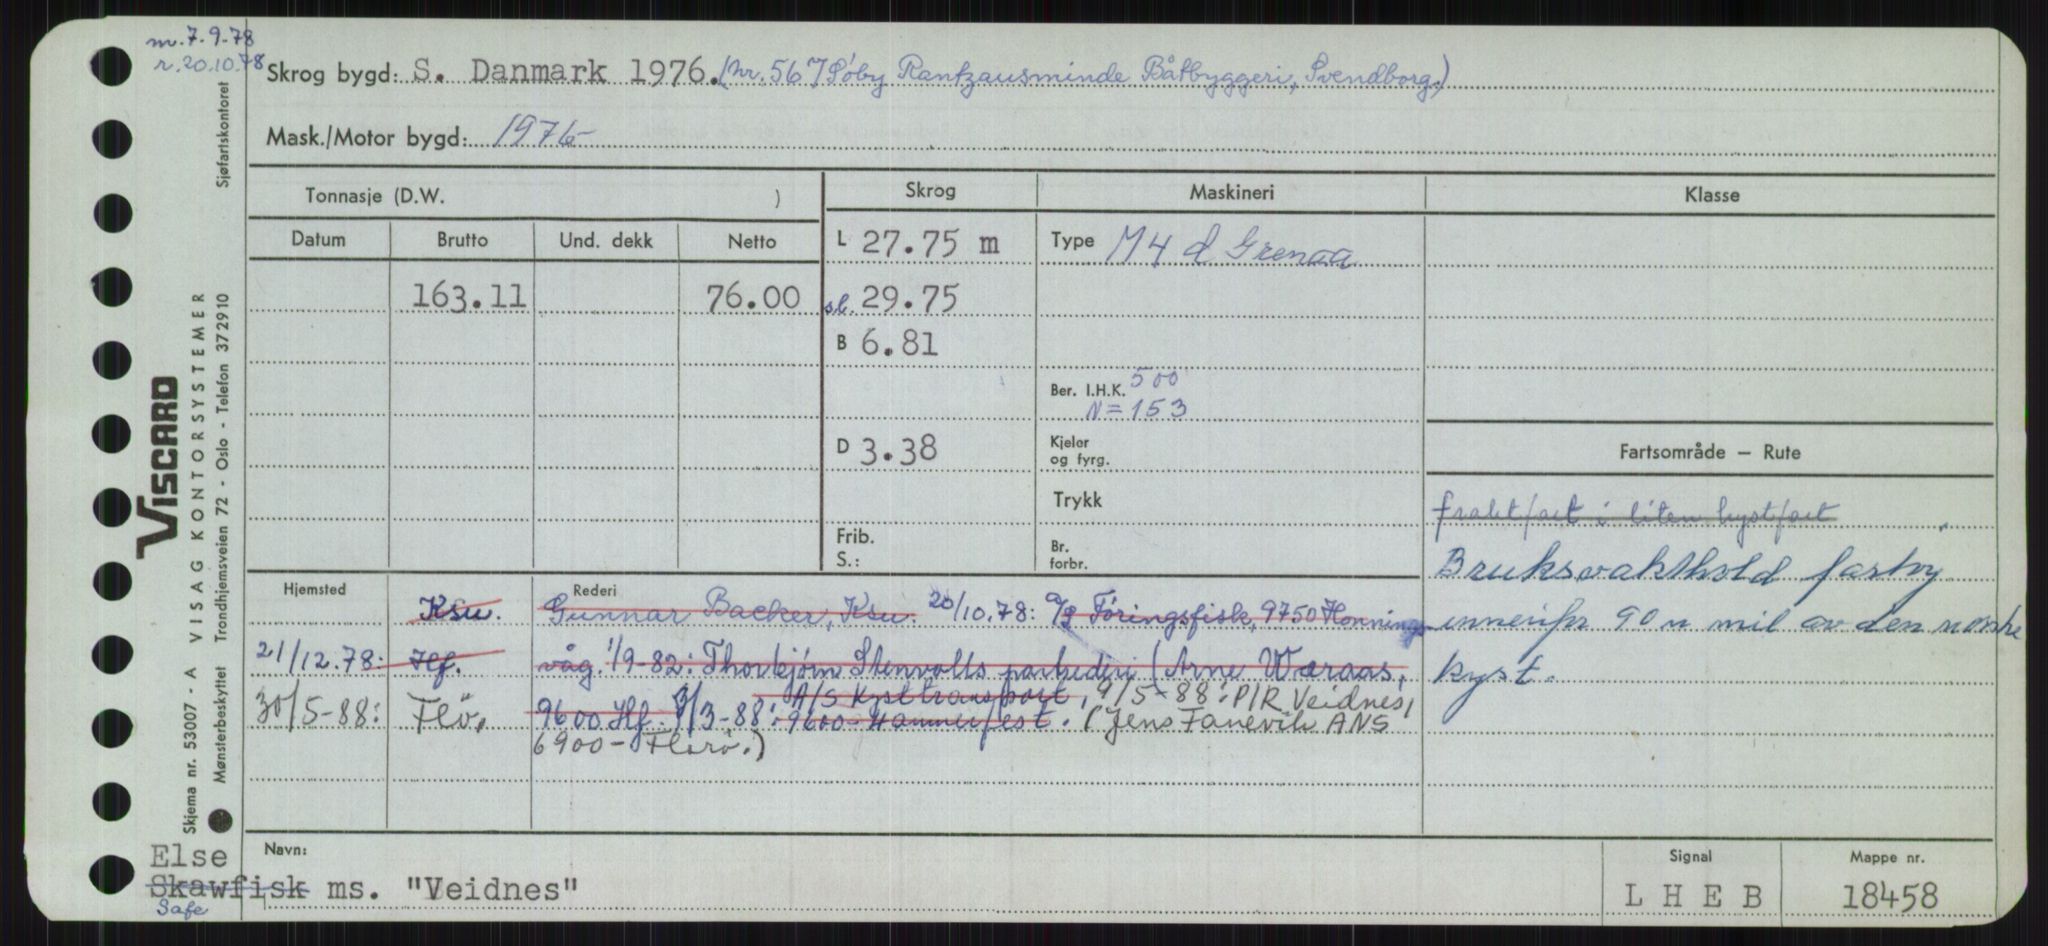 m. 7.9.78
r. 20.10.78
Skrog bygd: S. Danmark 1976. (nr. 567 Søby Rantzausminde Båtbyggeri, Svendborg.)
Mask./Motor bygd: 1976
Tonnasje (D.W. )
Skrog
Maskineri
Klasse
Datum
Brutto
Und. dekk
Netto
L 27.75 m
Type M4 d Grenaa
163.11
76.00
sl. 29.75
B 6.81
Ber. I.H.K. 500
N = 153
D 3.38
Kjeler
og fyrg.
Fartsområde — Rute
Trykk
fraktfart i liten kystfart
Frib.
S.:
Br.
forbr.
Bruksvakthold fartøy
innenfor 90 n mil av den norske
kyst.
Hjemsted
Rederi
Ksu. Gunnar Backer, Ksu. 20/10.78: Føringsfisk, 9750 Honnings-
21/12.78: Hf. våg. 1/9-82: Thorbjørn Stenvolls partrederi (Arne Wæraas,
A/S Kysttransport, 9/5-88: P/R Veidnes,
30/5-88: Flø. 9600 Hf. 3/3-88: 9600-Hammerfest. (Jens Fanevik ANS
6900 - Florø.)
Navn:
Signal
Mappe nr.
Else
Skawfisk ms. "Veidnes"
Safe
L H E B
18458
Sjøfartskontoret
VISCARD
VISAG KONTORSYSTEMER
Trondhjemsveien 72 - Oslo - Telefon 372910
Skjema nr. 53007 - A
Mønsterbeskyttet